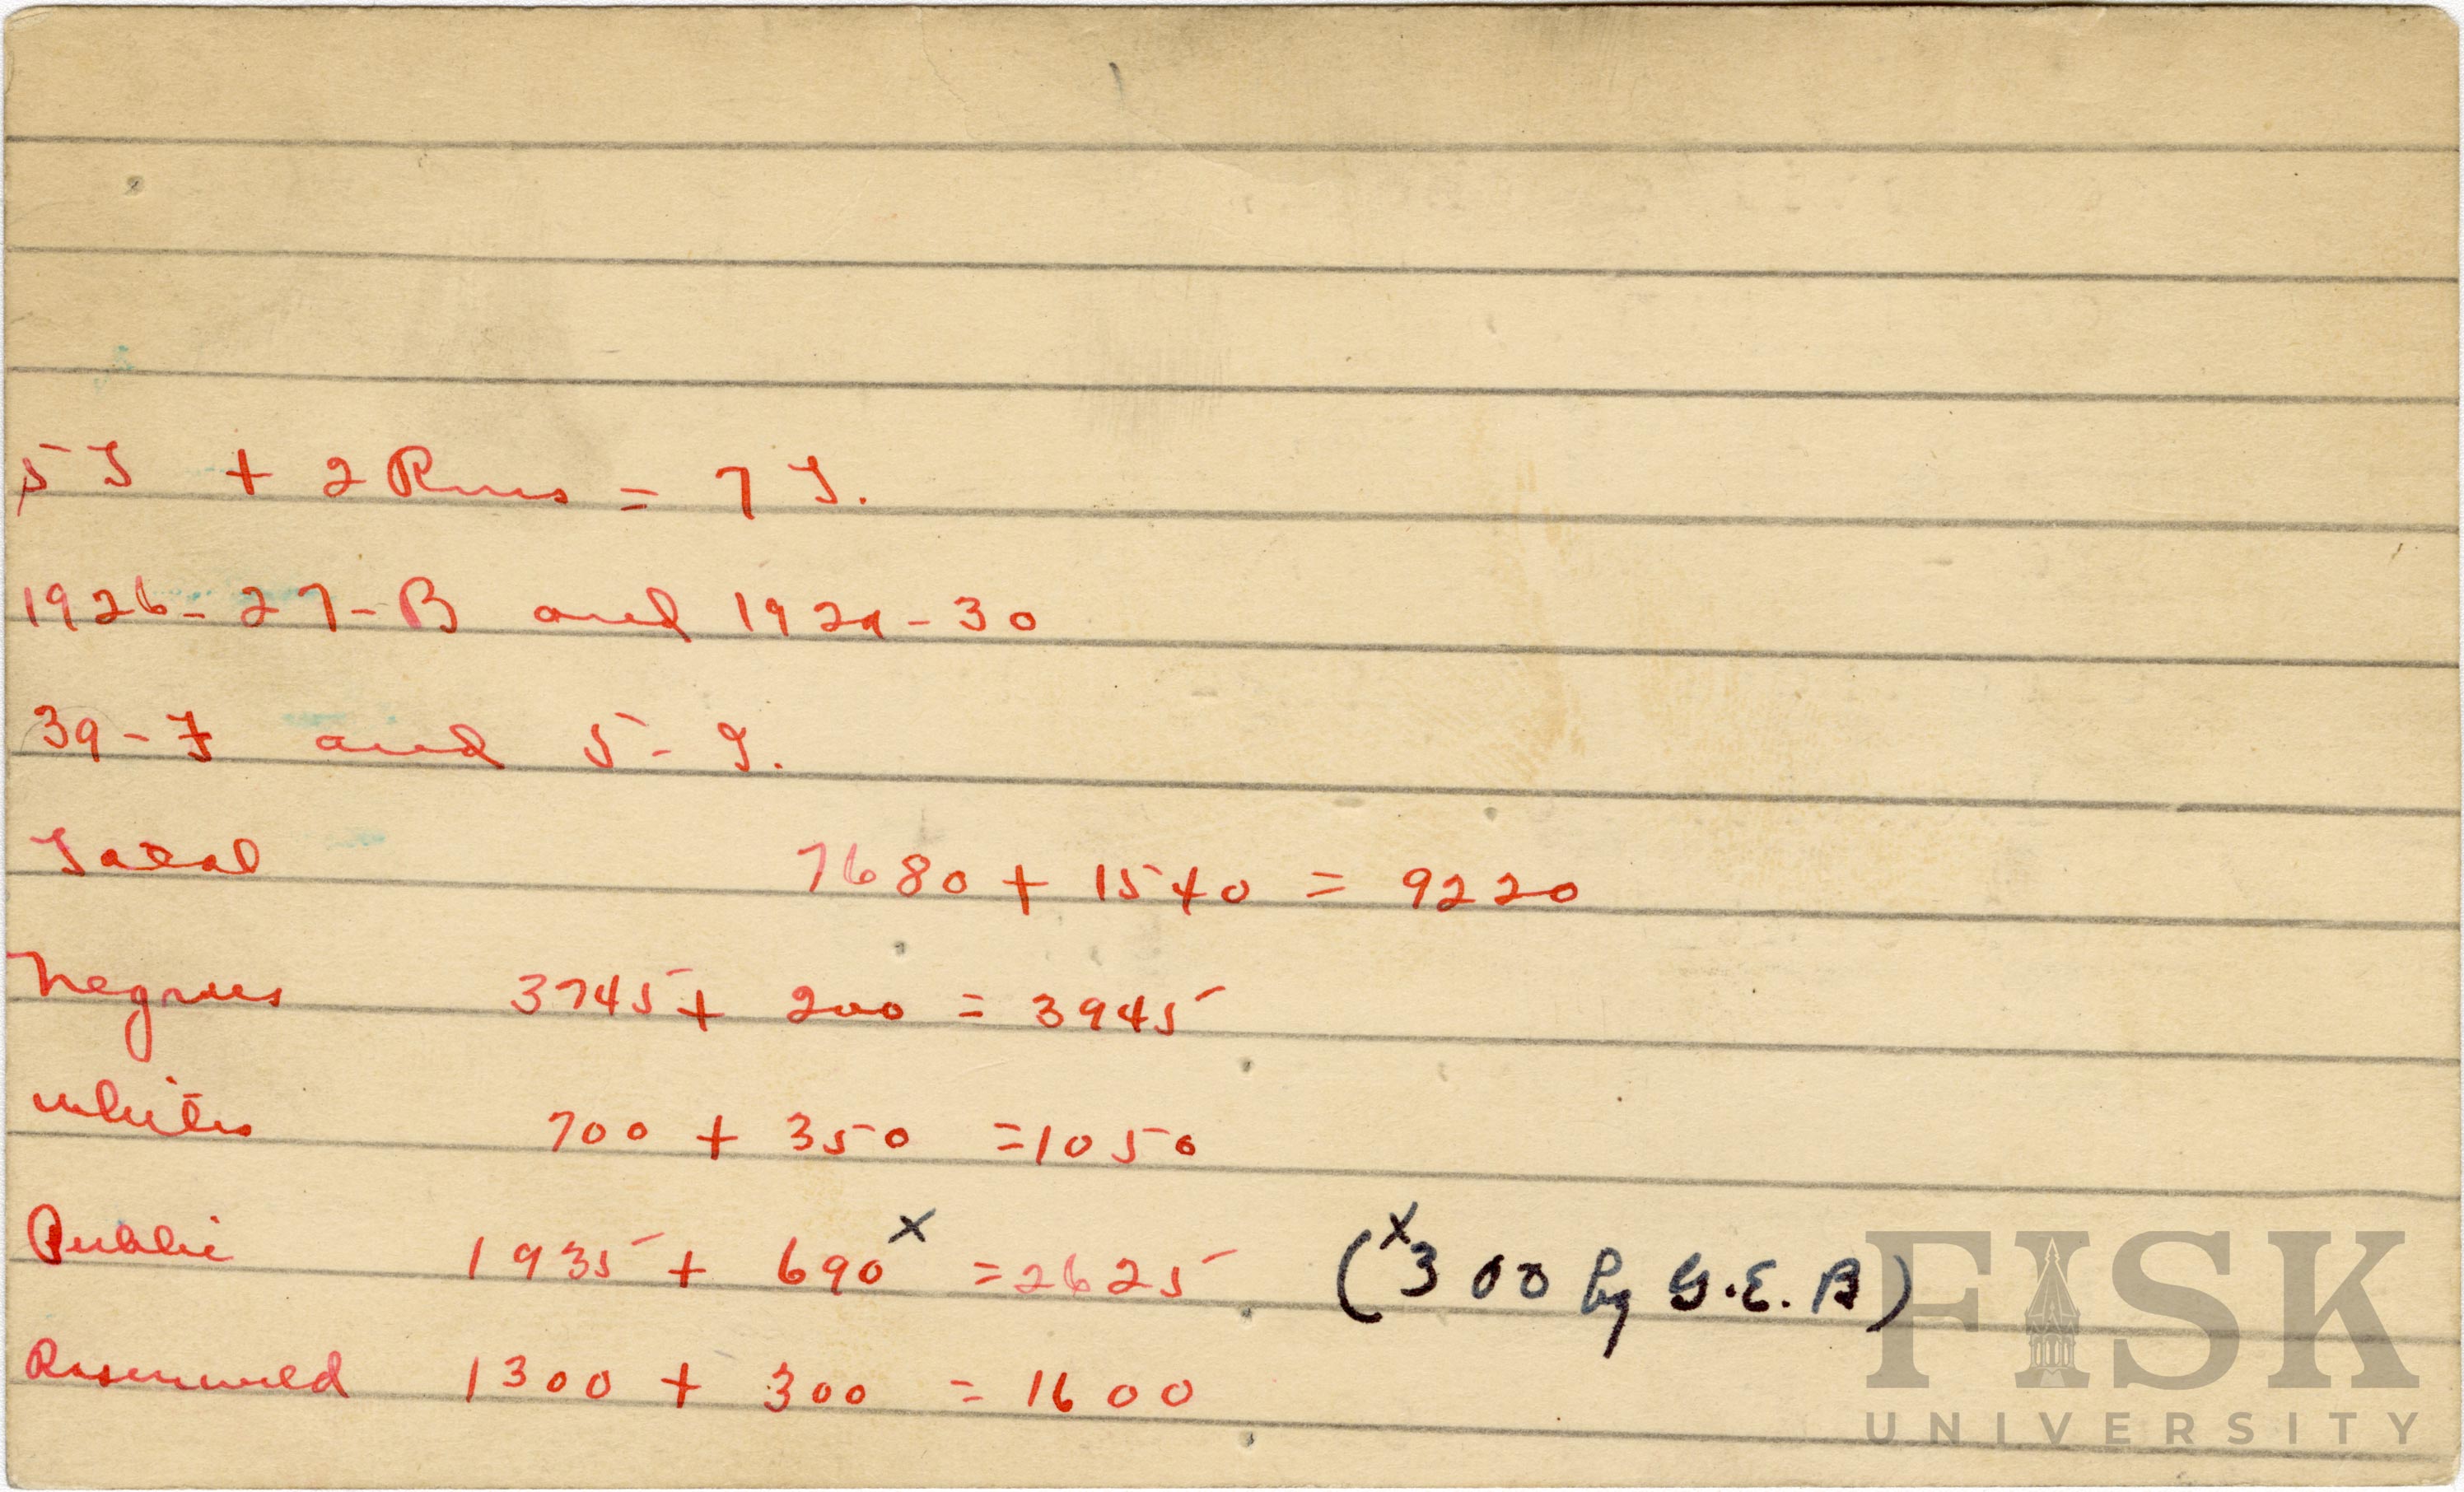 5 T + 2 Rms = 7 T.
1926-27-B and 1929-30
39-F and 5-I.
Total 7680 + 1540 = 9220
Negroes 3745 + 200 = 3945
whites 700 + 350 = 1050
Public 1935 + 690x = 2625 (x300 by G.E.B)
Rosenwald 1300 + 300 = 1600
FISK
UNIVERSITY